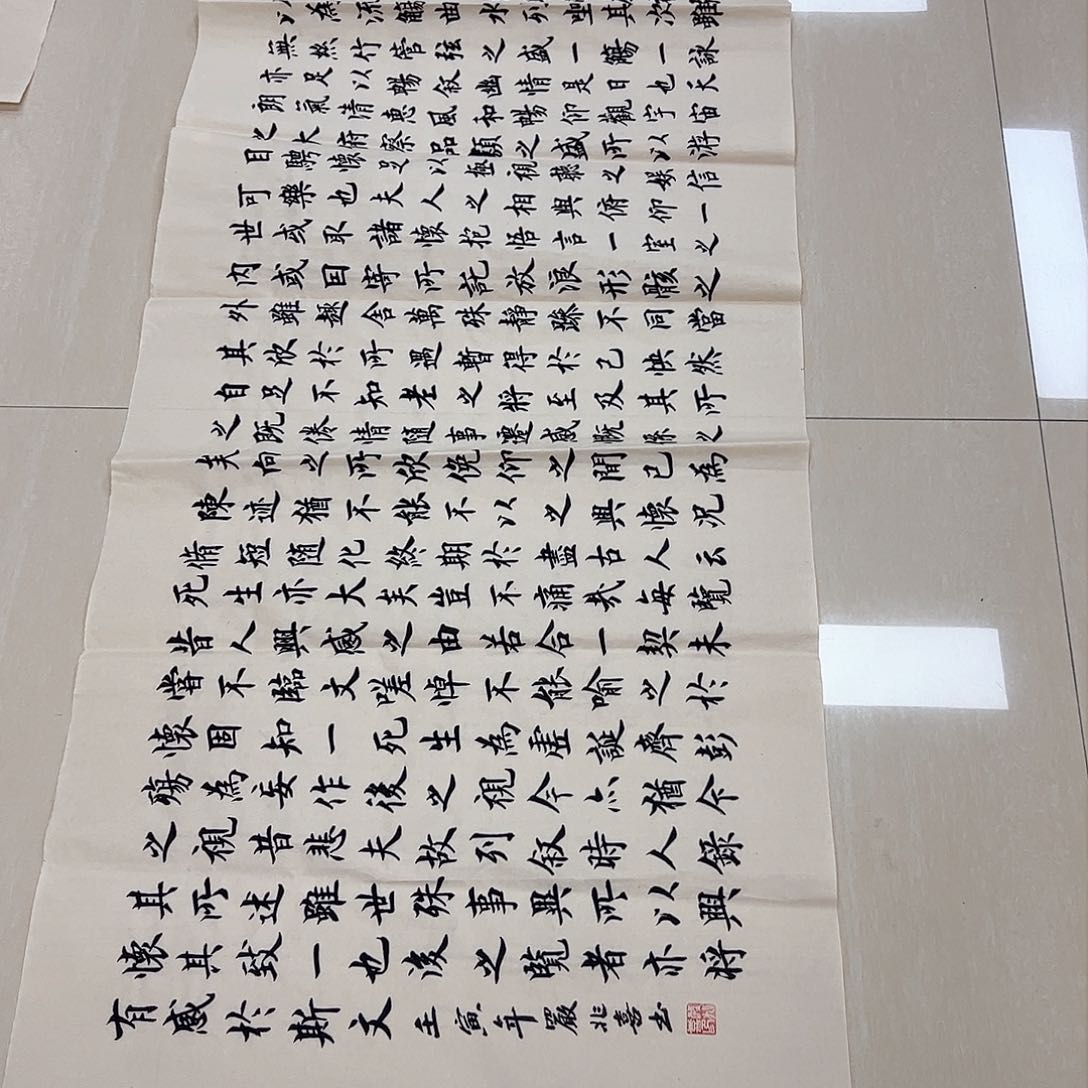 以為流觴曲水列坐其次雖
無絲竹管弦之盛一觴一詠
亦足以暢敘幽情是日也天
朗氣清惠風和暢仰觀宇宙
之大俯察品類之盛所以游
目騁懷足以極視聽之娛信
可樂也夫人之相與俯仰一
世或取諸懷抱悟言一室之
內或因寄所託放浪形骸之
外雖趣舍萬殊靜躁不同當
其欣於所遇暫得於己快然
自足不知老之將至及其所
之既倦情隨事遷感慨係之
矣向之所欣俛仰之間已為
陳迹猶不能不以之興懷況
脩短隨化終期於盡古人云
死生亦大矣豈不痛哉每覽
昔人興感之由若合一契未
嘗不臨文嗟悼不能喻之於
懷固知一死生為虛誕齊彭
殤為妄作後之視今亦猶今
之視昔悲夫故列敘時人錄
其所述雖世殊事異所以興
懷其致一也後之覽者亦將
有感於斯文 壬寅年嚴兆喜書